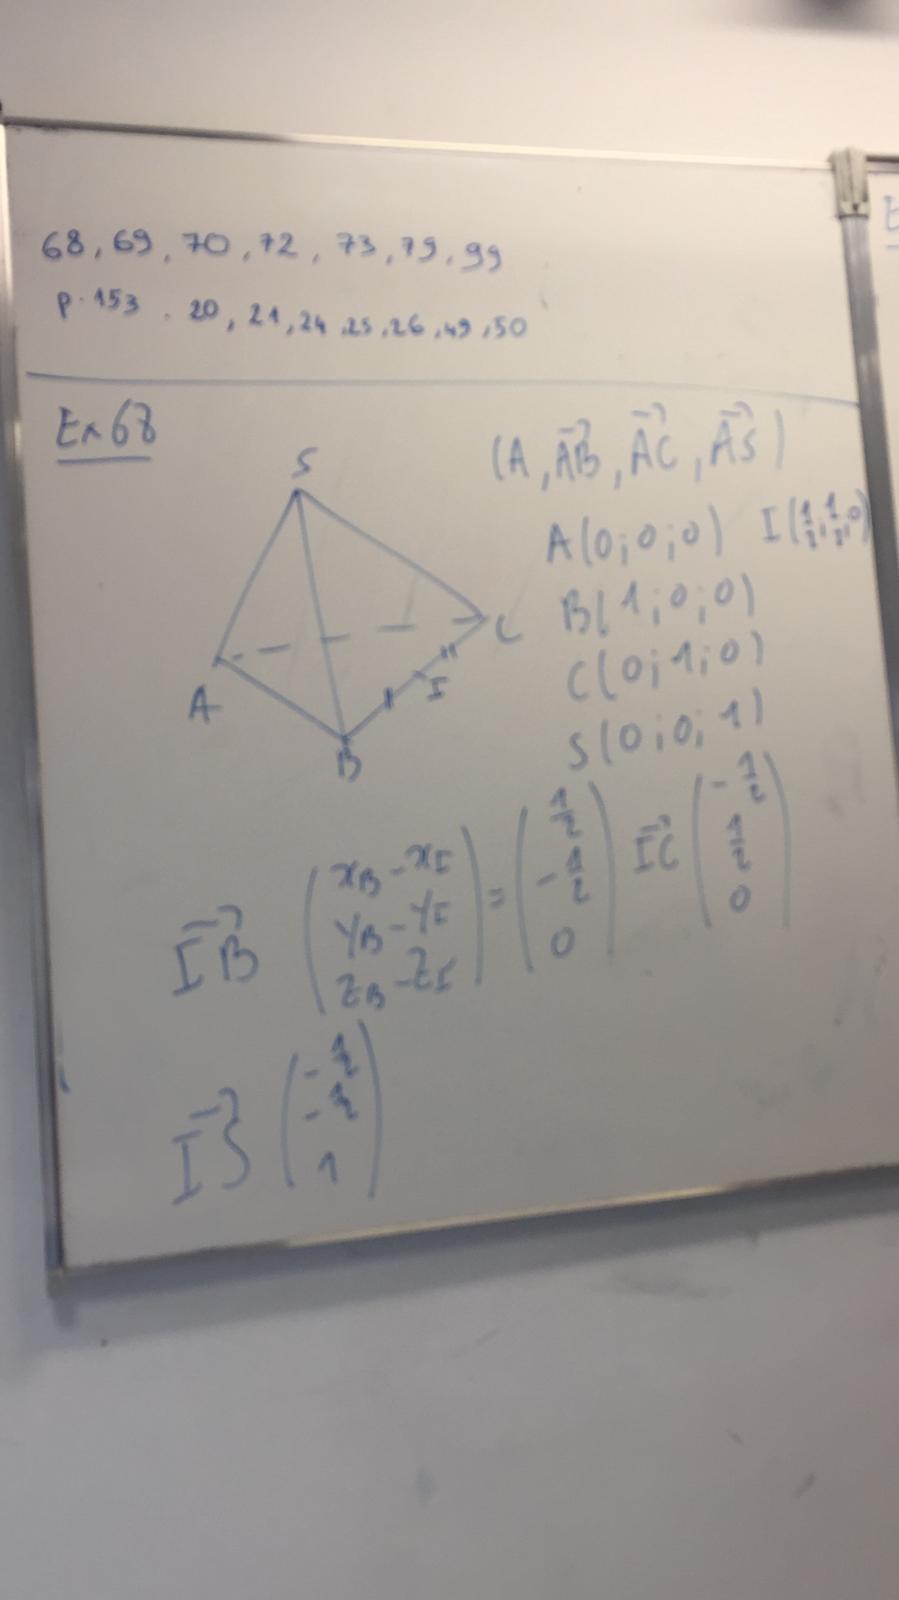 68, 69, 70, 72, 73, 79, 99
p.153. 20, 21, 24, 25, 26, 49, 50
Ex 68
(A, AB→, AC→, AS→)
S
A(0;0;0) I(1/2;1/2;0)
B(1;0;0)
C
C(0;1;0)
I
A
S(0;0;1)
B
IB→ (xB-xI yB-yI zB-zI) = (1/2 -1/2 0) IC→ (-1/2 1/2 0)
IS→ (-1/2 -1/2 1)